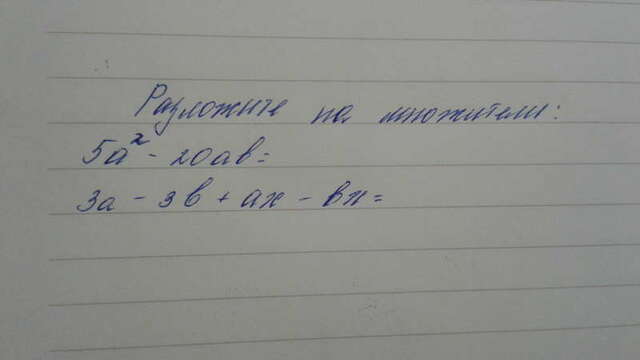 Разложите на множители:
5a² - 20ab=
3a - 3b + ax - bx=